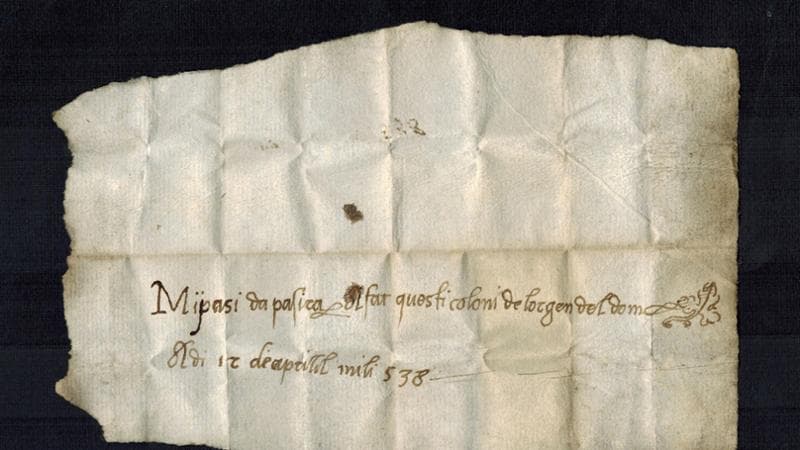 Mi pasi da pasira Al far questi coloni de lorgen del dom
Adi 12 de aprilil mili 538